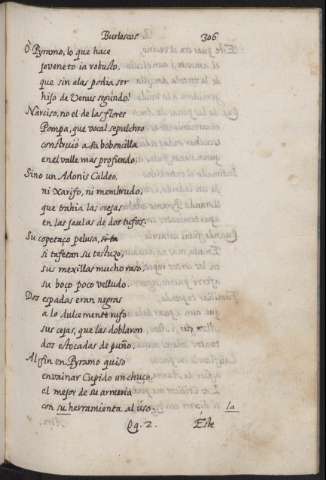 Burlescos 306
Ò Pyramo, lo que hace
joveneto ia robusto,
que sin alas podia ser
hijo de Venus segundo!
Narciso, no el de las flores
Pompa, que vocal sepulchro
construio a su bobencilla
en el valle mas profundo.
Sino un Adonis Caldeo,
ni Xarifo, ni membrudo,
que trahia las orejas
en las jaulas de dos tufos.
Su copetaço pelusa,
si tafetan su testuzo,
sus mexillas mucho raso,
su boço poco velludo.
Dos espadas eran negras
a lo dulcemente rufo
sus cejas, que las doblaron
dos estocadas de puño.
Al fin en Pyramo quiso
envainar Cupido un chuço
el mejor de su armeria
con su herramienta al uso. la
Qq. 2. Este